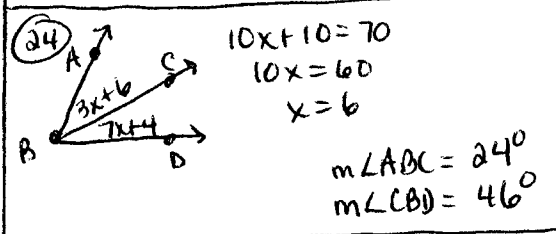 24
A
C
3x+6
7x+4
B
D
10x+10=70
10x=60
x=6
m∠ABC = 24°
m∠CBD = 46°